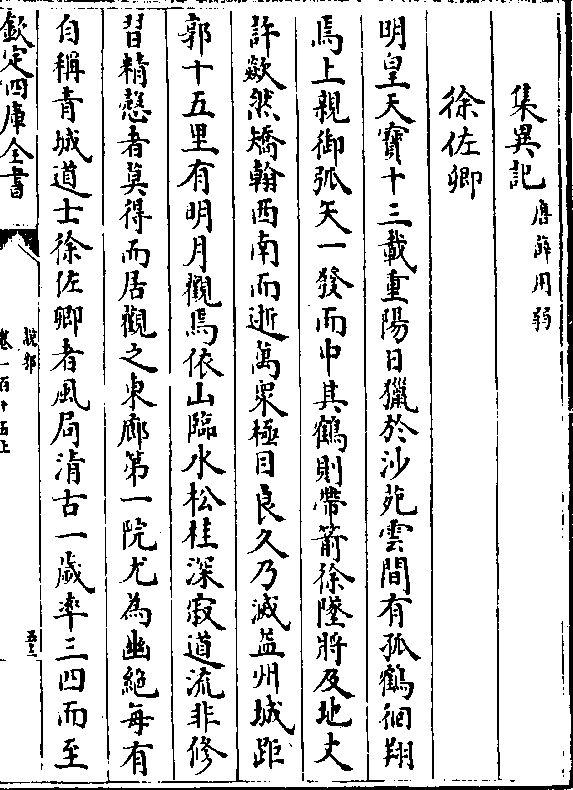 集異記
唐薛用弱
徐佐卿
明皇天寶十三載重陽日獵於沙苑雲間有孤鶴徊翔
焉上親御弧矢一發而中其鶴則帶箭徐墜將及地丈
許歘然矯翰西南而逝萬衆極目良久乃滅益州城距
郭十五里有明月觀焉依山臨水松桂深寂道流非修
習精慤者莫得而居觀之東廊第一院尤為幽絶每有
自稱青城道士徐佐卿者風局清古一歲率三四而至
欽定四庫全書
說郛
卷一百十五上